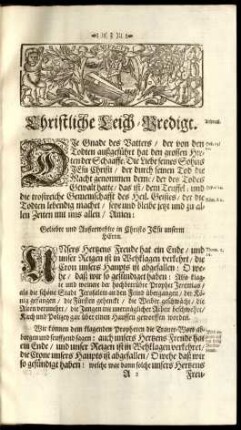 Christliche Leich-Predigt.
DIe Gnade des Vatters / der von den
Todten außgeführt hat den grossen Hir-
ten der Schaaffe: Die Liebe seines Sohns
JEsu Christi / der durch seinen Tod die
Macht genommen dem / der des Todes
Gewalt hatte / das ist / dem Teuffel / und
die trostreiche Gemeinschafft des Heil. Geistes / der die
Todten lebendig machet / seye und bleibe jetzt und zu al-
len Zeiten mit uns allen / Amen.
Geliebte und Außerwehlte in Christo JEsu unserm
HErrn.
UNsers Hertzens Freude hat ein Ende / und
unser Reigen ist in Wehklagen verkehrt / die
Cron unsers Haupts ist abgefallen / O we-
he / daß wir so gesündiget haben! Also klag-
te und weinete der hochbetrübte Prophet Jeremias /
als die schöne Stadt Jerusalem an den Feind übergangen / der Kö-
nig gefangen / die Fürsten gehenckt / die Weiber geschwächt / die
Kirch und Policey gar über einen Hauffen geworffen worden.
Wir können den klagenden Propheten die Trauer-Wort ab-
borgen und seuffzend sagen: auch unsers Hertzens Freude hat
ein Ende / und unser Reigen ist in Wehklagen verkehret /
die Crone unsers Haupts ist abgefallen / O wehe daß wir
so gesündiget haben: welche war dann solche unsers Hertzens
A
Freu-